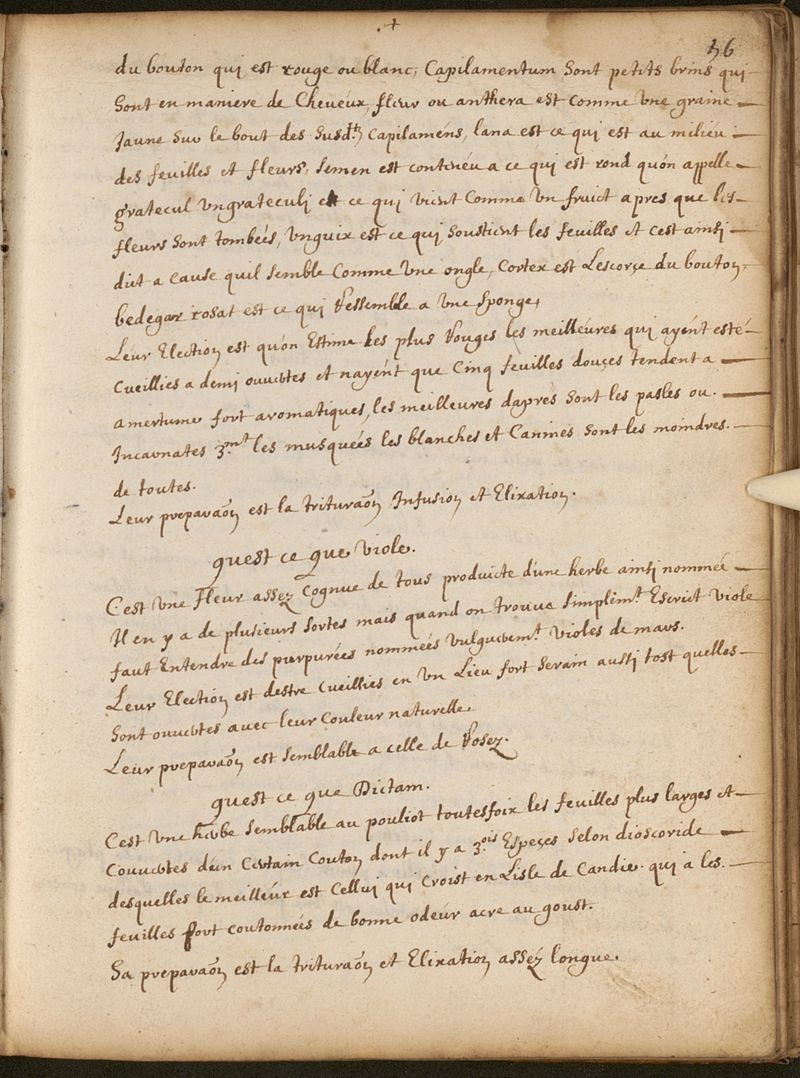 +
36
du bouton qui est rouge ou blanc, Capilamentum sont petits brins qui
sont en maniere de Cheveux, fleur ou anthera est comme une graine
Jaune sur le bout des susd.ts Capilaméns, lana est ce qui est au milieu
des feuilles et fleurs, semen est contenëu a ce qui est rond quón appelle
gratecul ungrateculi est ce qui vient Comme un fruict apres que les
fleurs sont tombeés, unguix est ce qui soustient les feuilles et cest ainsi
dit a cause quil semble Comme une ongle, Cortex est Lescorçe du bouton,
bedegar rosat est ce qui Ressemble a une sponge,
Leur Election est quón Estime les plus Rouges les meilleures qui ayént esté
Cueillies a demi ouvertes et nayént que Cinq feuilles douçes tendent a
amertume fort aromatiques, les meilleures daprés sont les pasles ou
Incarnates 3.mt les musquées les blanches et Canines sont les moindres.
de toutes.
Leur preparaõn est la trituraõn Infusion et Elixation.
quest ce que viole.
C'est une Fleur assez Cognue de tous producte d'une herbe ainsi nommeé
Il en y a de plusieurs sortes mais quand on trouve simplem.t Escrict viole
faut Entendre des purpurées nommées vulguerem.t violes de mars.
Leur Election est destre Cueillies en un Lieu fort serain aussi tost quelles
sont ouvertes avec leur Couleur naturelle.
Leur preparaõn est semblable a celle de Rosez.
quest ce que Dictam.
C'est une herbe semblable au pouliot toutesfoix les feuilles plus larges et
Couvertes d'un Certain Couton dont il y a 3.ois Espeçes selon dioscoride
desquelles le meilleur est Cellui qui Croist en Lisle de Candie. qui a les
feuilles fort coutonneés de bonne odeur acre au goust.
Sa preparaõn est la trituraõn et Elixation assez longue.